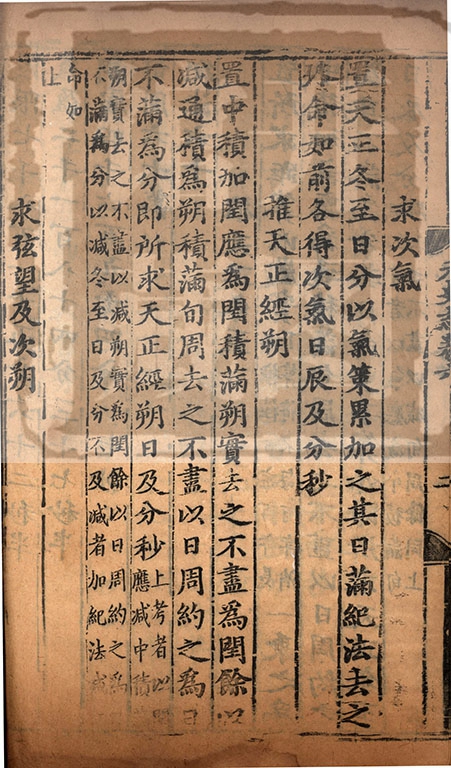 二
求次氣
置天正冬至日分以氣策累加之其日滿紀法去之
外命如前各得次氣日辰及分秒
推天正經朔
置中積加閏應爲閏積滿朔實去之不盡爲閏餘以
減通積爲朔積滿旬周去之不盡以日周約之爲日
不滿爲分即所求天正經朔日及分秒
上考者以
應減中積
朔實去之不盡以減朔實爲閏餘以日周約之爲
不滿爲分以減冬至日及分不及減者加紀法減
命如
上
求弦望及次朔